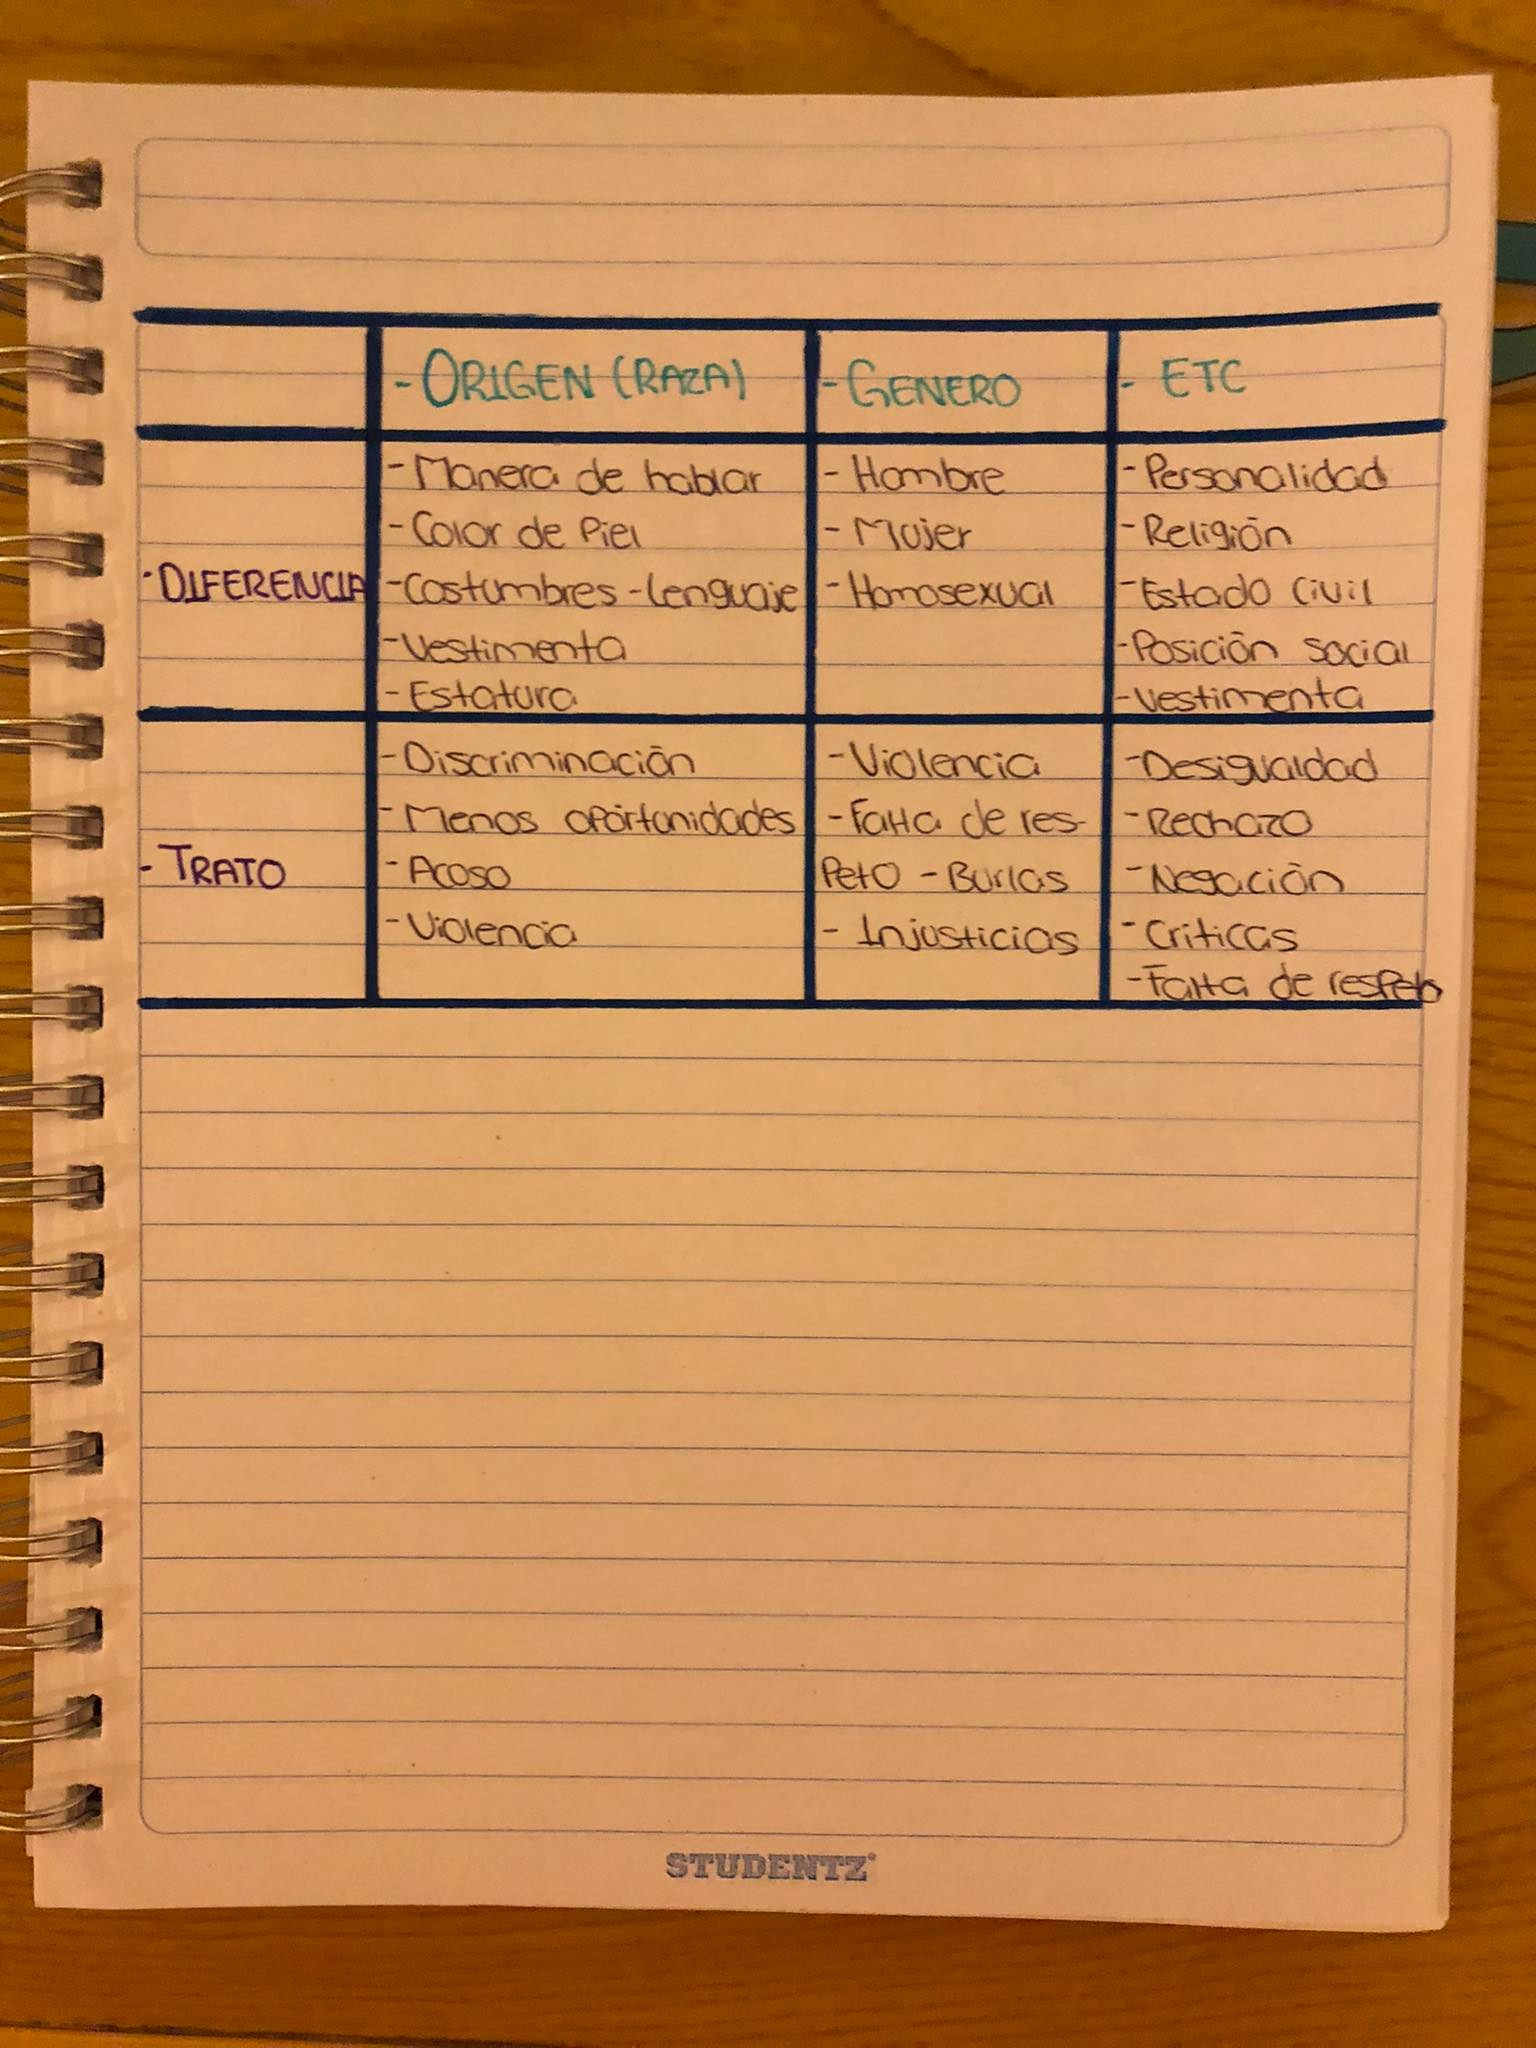 - ORIGEN (RAZA)
- GENERO
- ETC
· DIFERENCIA
- Manera de hablar
- Color de Piel
- Costumbres - Lenguaje
- Vestimenta
- Estatura
- Hombre
- Mujer
- Homosexual
- Personalidad
- Religión
- Estado Civil
- Posición social
- Vestimenta
- TRATO
- Discriminación
- Menos oportunidades
- Acoso
- Violencia
- Violencia
- Falta de res-
peto - Burlas
- Injusticias
- Desigualdad
- Rechazo
- Negación
- Criticas
- Falta de respeto
STUDENTZ